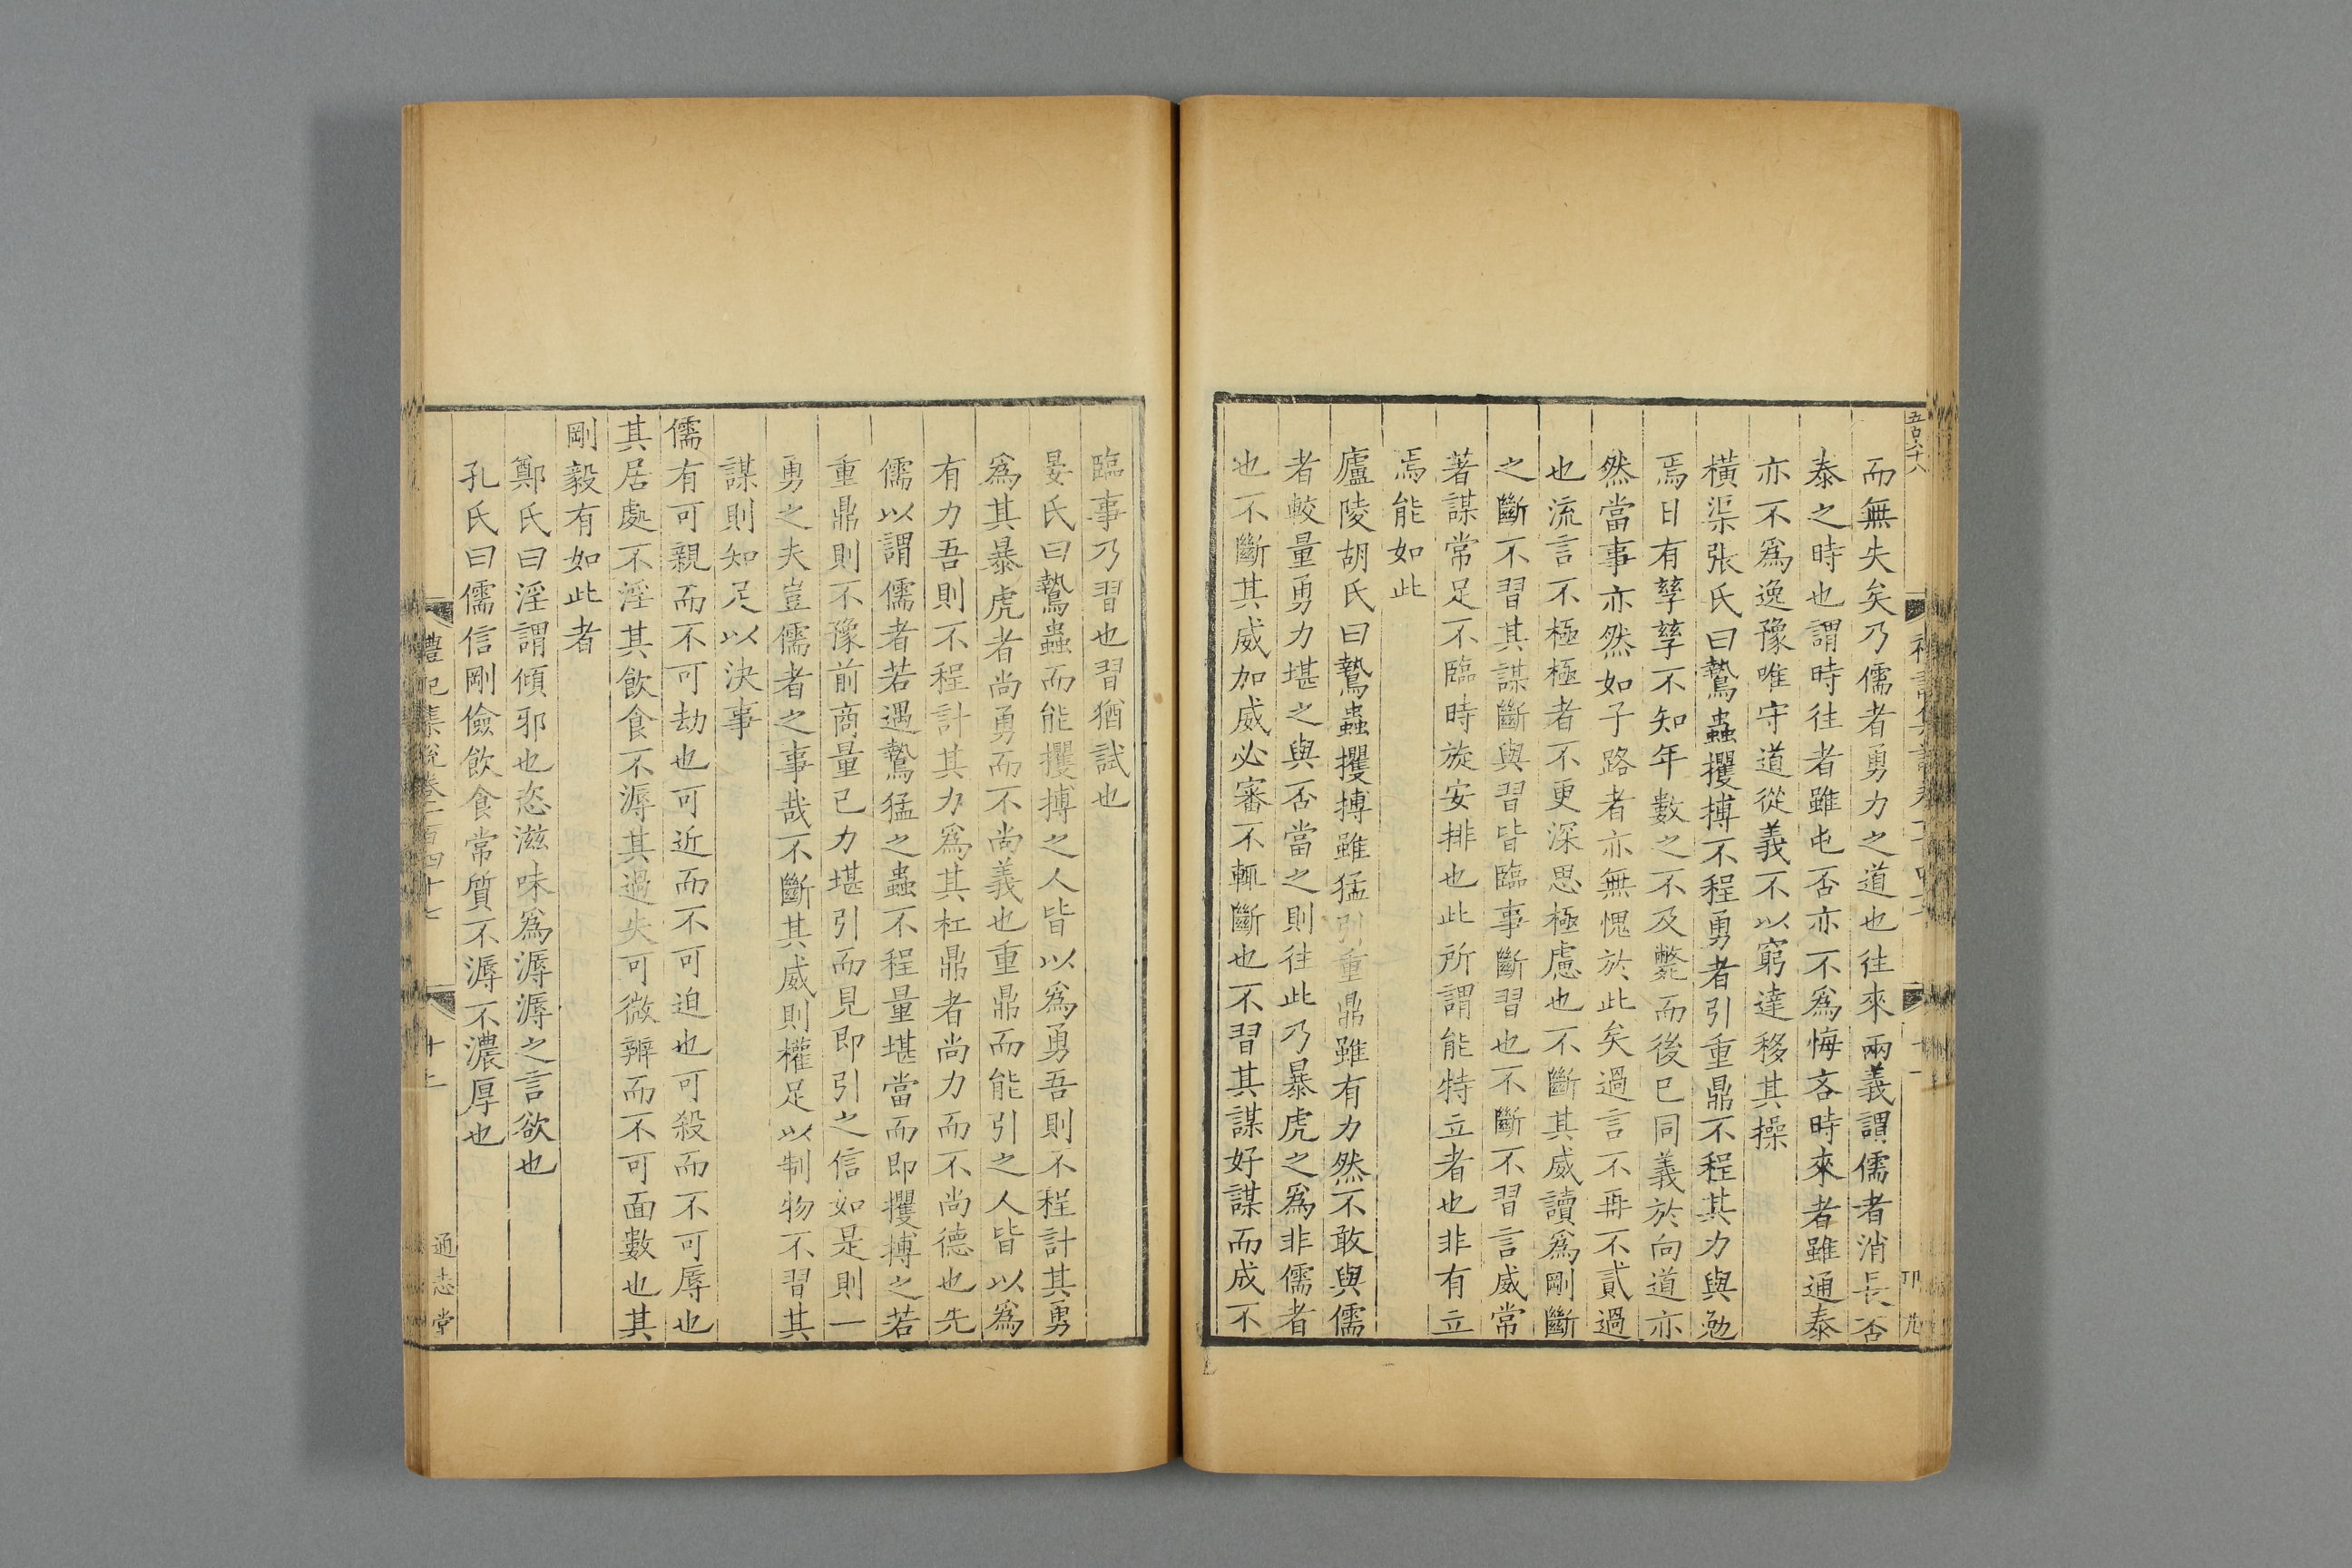 五百六十八
而無失矣乃儒者勇力之道也往來兩義謂儒者消長否
泰之時也謂時往者雖屯否亦不爲悔吝時來者雖通泰
亦不爲逸豫唯守道從義不以窮達移其操
橫渠張氏曰鷙蟲攫搏不程勇者引重鼎不程其力與勉
焉日有孳孳不知年數之不及斃而後已同義於向道亦
然當事亦然如子路者亦無愧於此矣過言不再不貳過
也流言不極極者不更深思極慮也不斷其威讀爲剛斷
之斷不習其謀斷與習皆臨事斷習也不斷不習言威常
著謀常足不臨時旋安排也此所謂能特立者也非有立
焉能如此
廬陵胡氏曰鷙蟲攫搏雖猛引重鼎雖有力然不敢與儒
者較量勇力堪之與否當之則往此乃暴虎之爲非儒者
也不斷其威加威必審不輒斷也不習其謀好謀而成不
臨事乃習也習猶試也
晏氏曰鷙蟲而能攫搏之人皆以爲勇吾則不程計其勇
爲其暴虎者尚勇而不尚義也重鼎而能引之人皆以爲
有力吾則不程計其力爲其杠鼎者尚力而不尚德也先
儒以謂儒者若遇鷙猛之蟲不程量堪當而即攫搏之若
重鼎則不豫前商量己力堪引而見即引之信如是則一
勇之夫豈儒者之事哉不斷其威則權足以制物不習其
謀則知足以決事
儒有可親而不可劫也可近而不可迫也可殺而不可辱也
其居處不淫其飲食不溽其過失可微辨而不可面數也其
剛毅有如此者
鄭氏曰淫謂傾邪也恣滋味爲溽溽之言欲也
孔氏曰儒信剛儉飲食常質不溽不濃厚也
禮記集說卷一百四十七
十二
通志堂